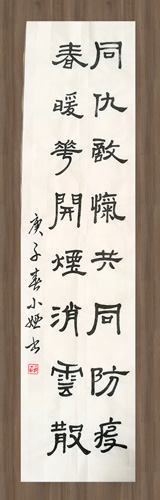 同仇敌愾共同防疫
春暖花開煙消雲散
庚子春小娅书